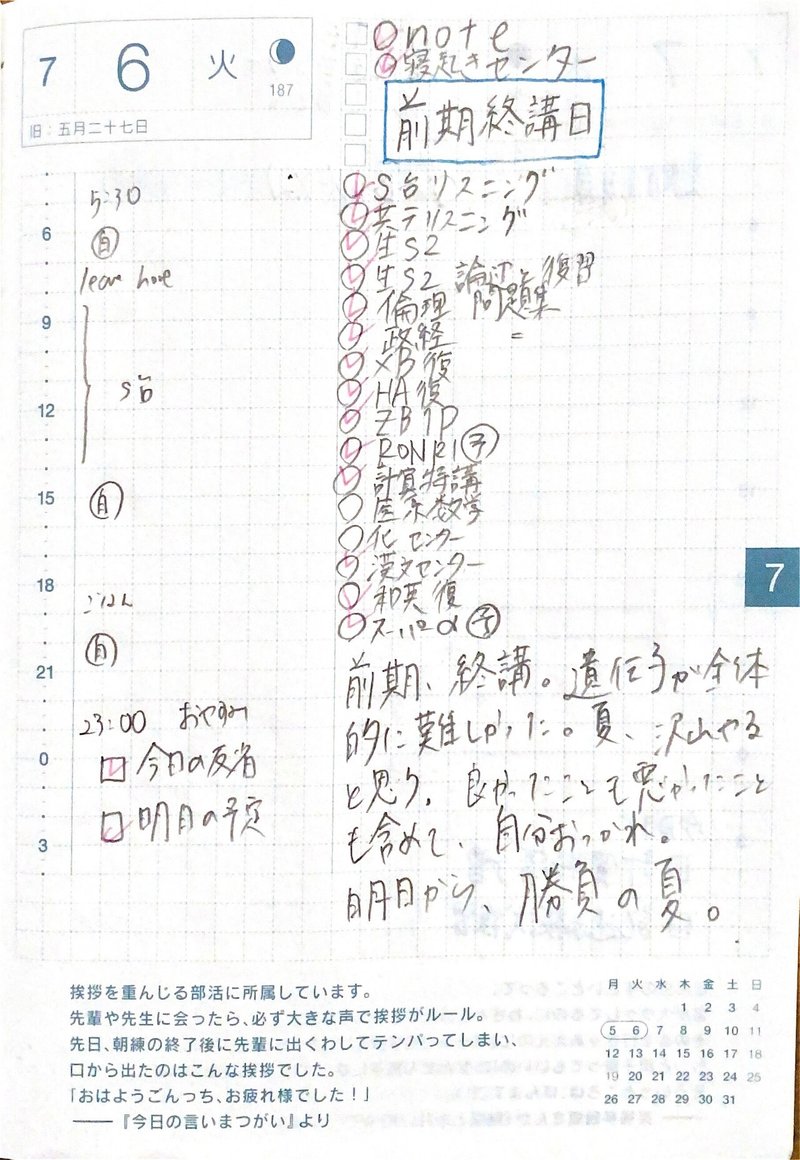 7 6 火
187
旧:五月二十七日
note
寝起きセンター
前期終講日
5:30
自
leave home
S台
自
ごはん
自
23:00 おやすみ
今日の反省
明日の予定
6
9
12
15
18
21
0
3
S台リスニング
共テリスニング
生S2
生S2 論述と復習
倫理 問題集
政経
XB復
HA復
ZB 1P
RONRI 予
計算特講
座系数学
化センター
漢文センター
和英復
スーパーα 予
7
前期、終講。遺伝子が全体
的に難しかった。夏、沢山やる
と思う。良かったことも悪かったこと
も含めて、自分おつかれ。
明日から、勝負の夏。
挨拶を重んじる部活に所属しています。
先輩や先生に会ったら、必ず大きな声で挨拶がルール。
先日、朝練の終了後に先輩に出くわしてテンパってしまい、
口から出たのはこんな挨拶でした。
「おはようごんっち、お疲れ様でした!」
――『今日の言いまつがい』より
月 火 水 木 金 土 日
1 2 3 4
5 6 7 8 9 10 11
12 13 14 15 16 17 18
19 20 21 22 23 24 25
26 27 28 29 30 31